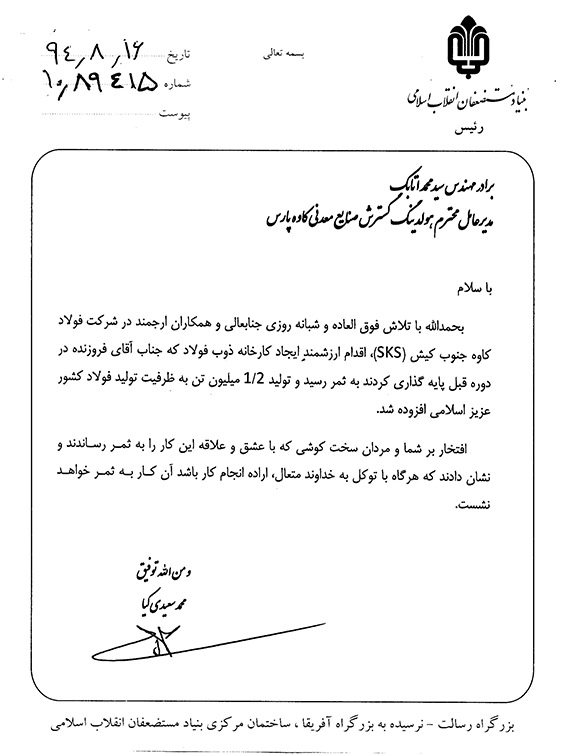 بسمه تعالی
بنیاد مستضعفان انقلاب اسلامی
رئیس
تاریخ ۹۴٫۸٫۱۶
شماره ۱۰٫۸۹۴۱۵
پیوست
برادر مهندس سید محمد اتابک
مدیرعامل محترم هولدینگ گسترش صنایع معدنی کاوه پارس
با سلام
بحمدالله با تلاش فوق العاده و شبانه روزی جنابعالی و همکاران ارجمند در شرکت فولاد
کاوه جنوب کیش (SKS)، اقدام ارزشمند ایجاد کارخانه ذوب فولاد که جناب آقای فروزنده در
دوره قبل پایه گذاری کردند به ثمر رسید و تولید 1/2 میلیون تن به ظرفیت تولید فولاد کشور
عزیز اسلامی افزوده شد.
افتخار بر شما و مردان سخت کوشی که با عشق و علاقه این کار را به ثمر رساندند و
نشان دادند که هرگاه با توکل به خداوند متعال، اراده انجام کار باشد آن کار به ثمر خواهد
نشست.
ومن الله توفیق
محمد سعیدی کیا
بزرگراه رسالت - نرسیده به بزرگراه آفریقا ، ساختمان مرکزی بنیاد مستضعفان انقلاب اسلامی